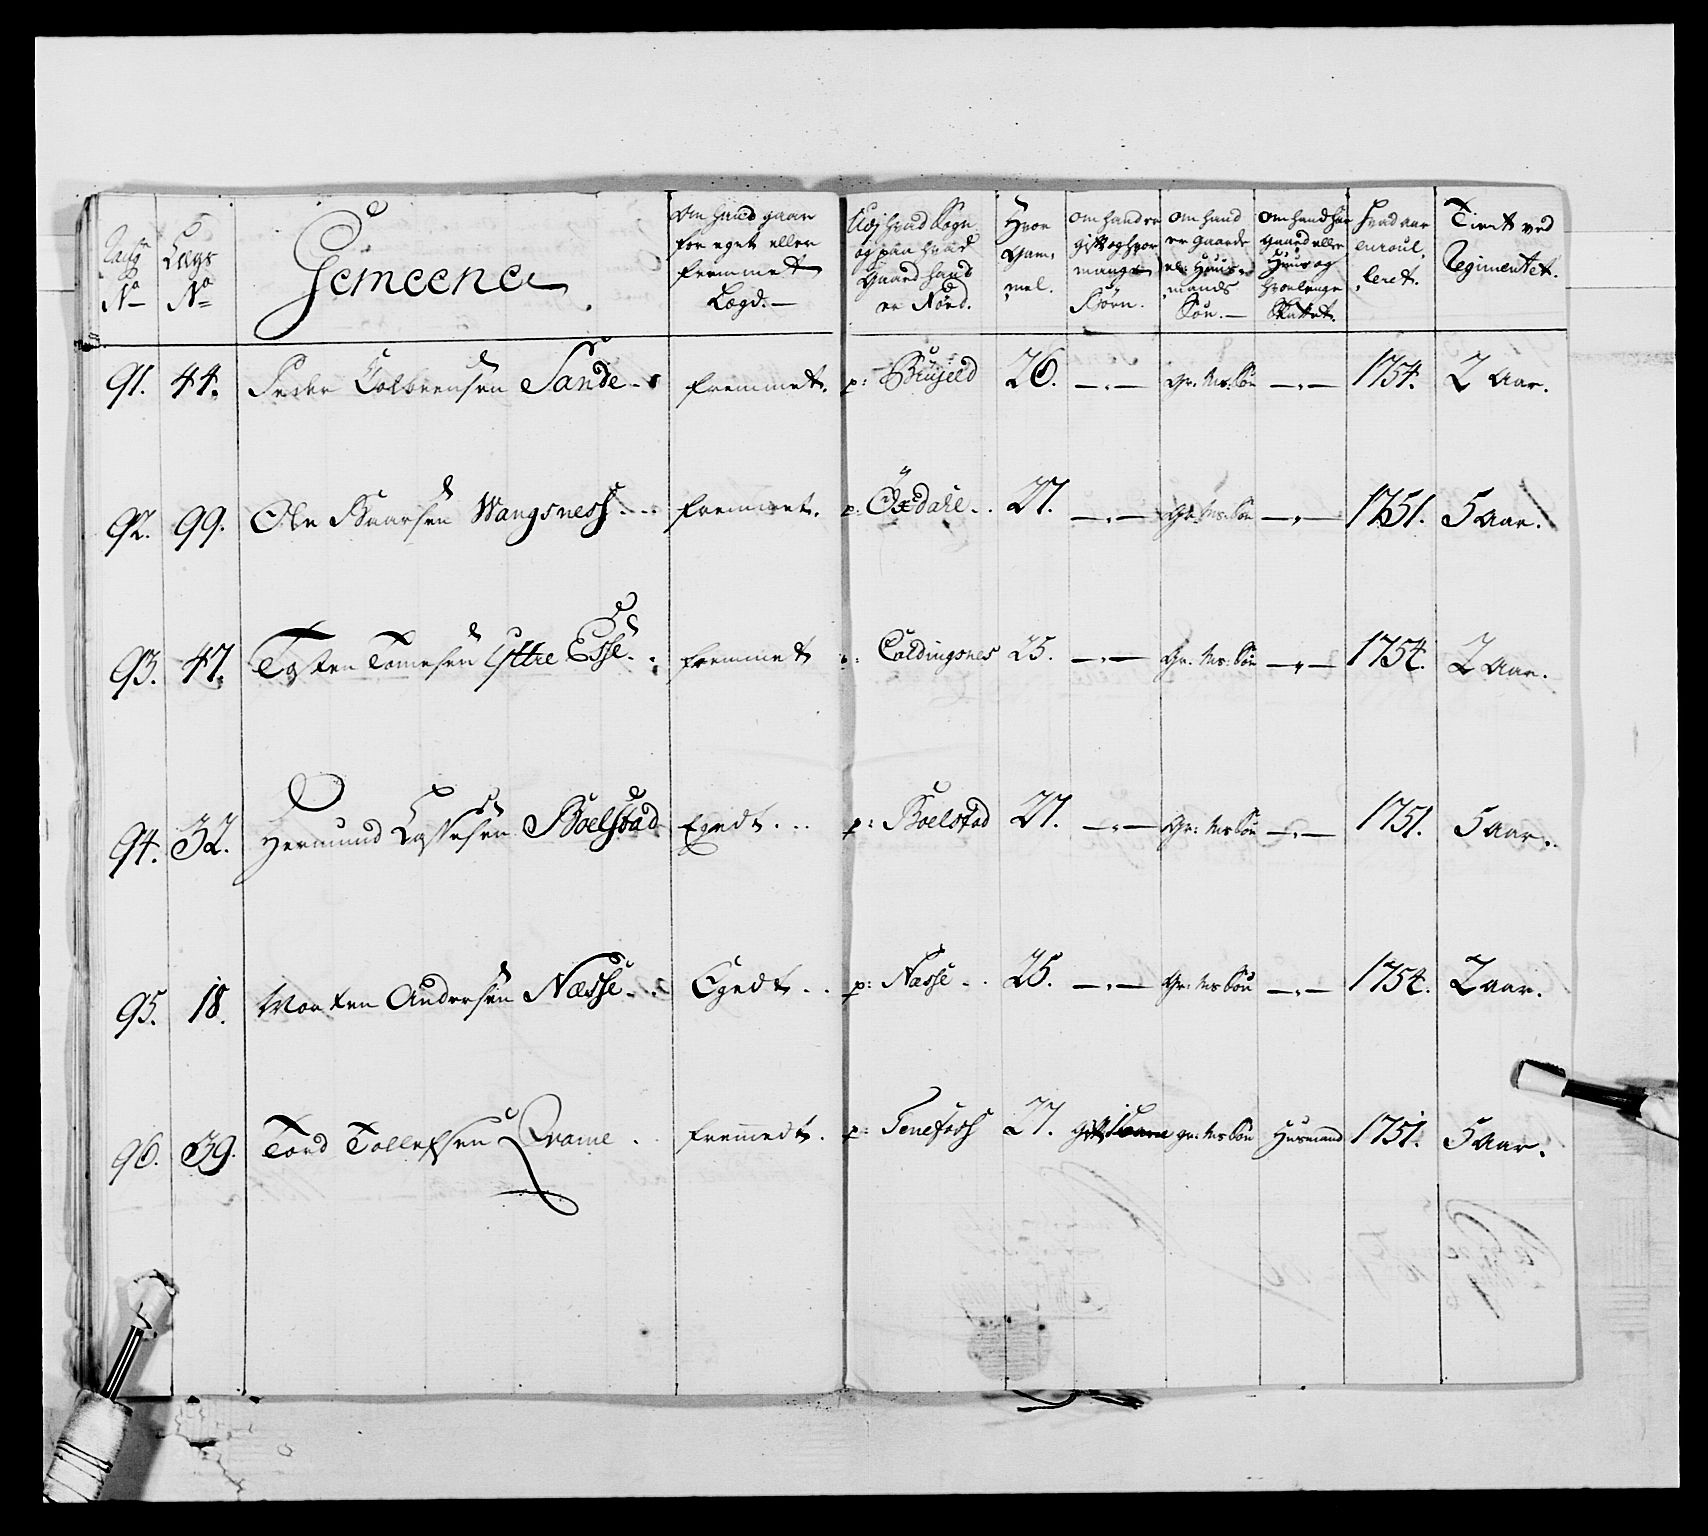 Rang
No
Lægs
No
Gemeene
Om hand gaar
for eget eller
fremmet
Lægd.
Udj hvad Sogn
og paa hvad
Gaard hand
er Nørd.
Hvor
Gam-
mel.
Om hand er
gift og hvor
mange
Børn.
Om hand
er Gaards
el: Huus-
mands
Søn.
Om hand har
Gaard eller
Huus og
hvorlenge
Skattet.
Hvad aar
enroul-
leret.
Tient ved
Regimentet.
91. 44. Peder Colbeensen Sande fremmet. p: 26. —"— Gr: Ms: Søn —"— 1754. 2 Aar.
92. 99. Ole Baarsen Wangsness fremmet. p: Öxdale 27. —"— Gr: Ms: Søn —"— 1751. 5 Aar.
93. 47. Tosten Tomesen Yttre Esse. fremmet p: Coldingsnes 25. —"— Gr: Ms: Søn —"— 1754. 2 Aar.
94. 32. Hermund Lassesen Boelstad Egedt. p: Boelstad 27. —"— Gr: Ms: Søn —"— 1751. 5 Aar.
95. 18. Morten Andersen Næsse Egedt p: Næsse 25. —"— Gr: Ms Søn —"— 1754. 2 Aar.
96. 39. Tord Tollefsen Qvame fremmedt. p: Tenefoss 27. gift gr: Ms Søn Husmand 1751. 5 Aar.